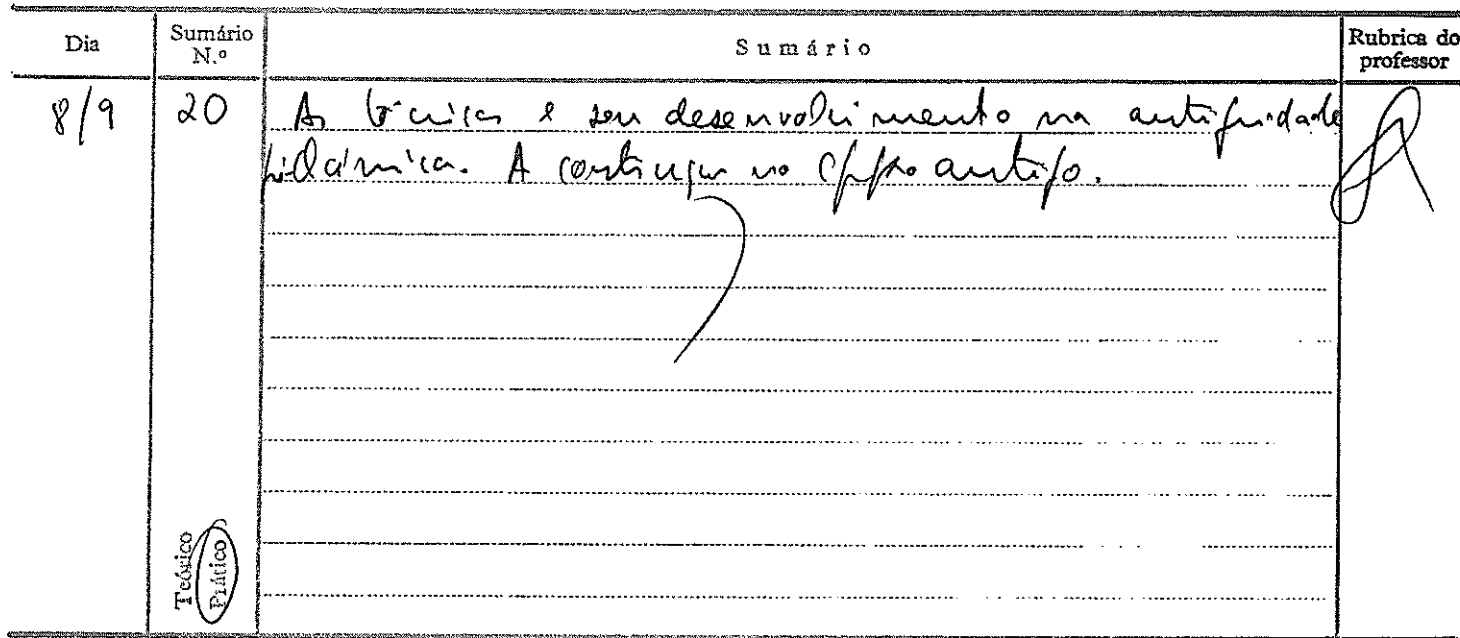 Dia
Sumário N.º
Sumário
Rubrica do professor
8/9
20
As técnicas e seu desenvolvimento na antiguidade
A no Egipto antigo.
Teórico
Prático